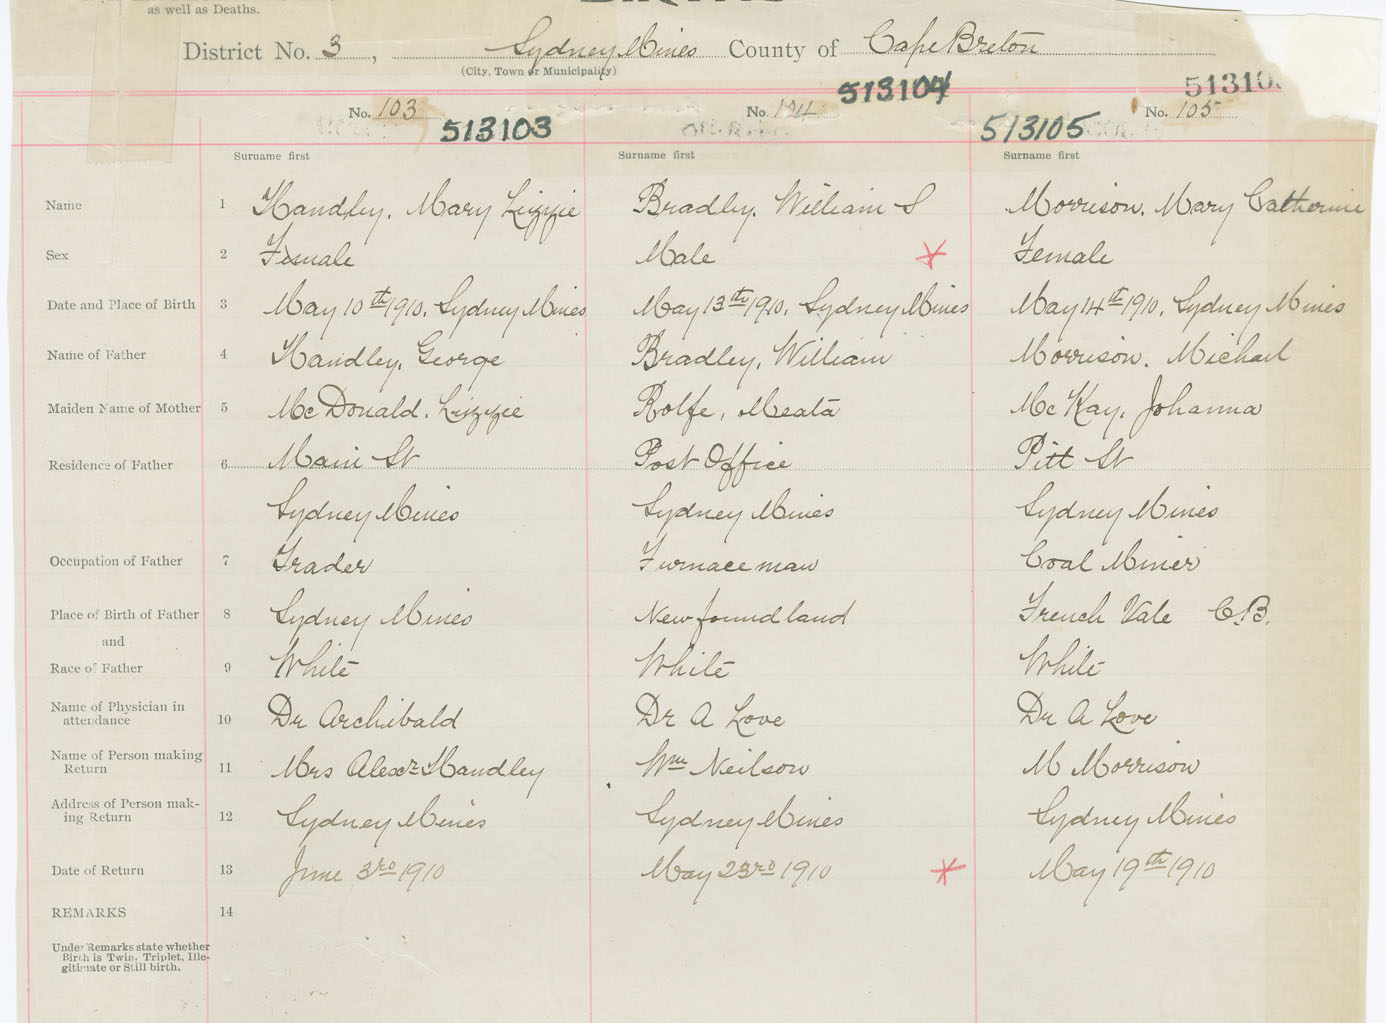 as well as Deaths.
District No. 3, Sydney Mines County of Cape Breton
(City, Town or Municipality)
513104
No. 103 No. 104 No. 105
513103 513105
Surname first Surname first Surname first
Name 1 Handley, Mary Lizzie Bradley, William S Morrison, Mary Catherine
Sex 2 Female Male Female
Date and Place of Birth 3 May 10th 1910, Sydney Mines May 13th 1910, Sydney Mines May 14th 1910, Sydney Mines
Name of Father 4 Handley, George Bradley, William Morrison, Michael
Maiden Name of Mother 5 McDonald, Lizzie Rolfe, Meata McKay, Johanna
Residence of Father 6 Main St Post Office Pitt St
Sydney Mines Sydney Mines Sydney Mines
Occupation of Father 7 Trader Furnaceman Coal Miner
Place of Birth of Father 8 Sydney Mines Newfoundland French Vale C.B.
and
Race of Father 9 White White White
Name of Physician in
attendance 10 Dr Archibald Dr A Love Dr A Love
Name of Person making
Return 11 Mrs Alexr Handley Wm Neilson M Morrison
Address of Person mak-
ing Return 12 Sydney Mines Sydney Mines Sydney Mines
Date of Return 13 June 3rd 1910 May 23rd 1910 May 19th 1910
REMARKS 14
Under Remarks state whether
Birth is Twin, Triplet, Ille-
gitimate or Still birth.